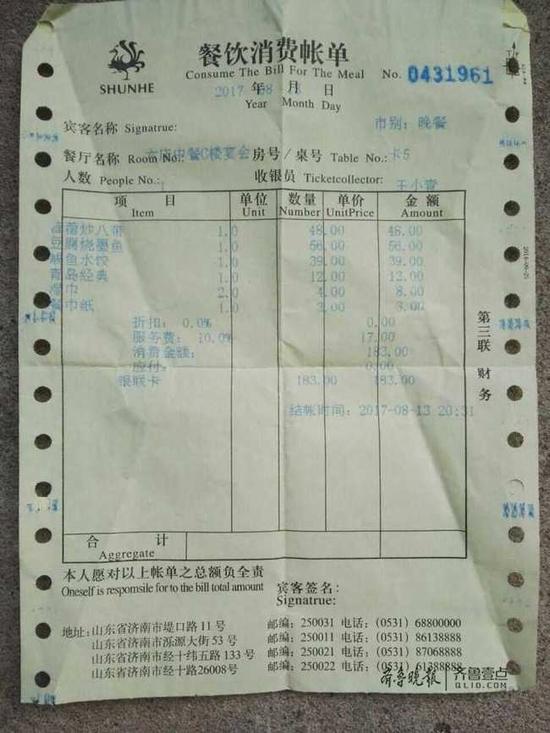 SHUNHE
餐饮消费帐单
Consume The Bill For The Meal
No. 0431961
2017 年 8 月 日
Year Month Day
宾客名称 Signatrue:
市别: 晚餐
餐厅名称 Room No.: 中餐C楼宴会 房号/桌号 Table No.: 卡5
人数 People No.: 收银员 Ticketcollector: 王小
项 目 单位 数量 单价 金额
Item Unit Number UnitPrice Amount
炒八带 1.0 48.00 48.00
豆腐烧墨鱼 1.0 56.00 56.00
鲅鱼水饺 1.0 39.00 39.00
青岛经典 1.0 12.00 12.00
湿巾 2.0 4.00 8.00
餐巾纸 1.0 3.00 3.00
折扣: 0.0% 0.00
服务费: 10.0% 17.00
消费金额: 183.00
应付: 0.00
银联卡 183.00 183.00
结帐时间: 2017-08-13 20:31
第三联 财务
合 计
Aggregate
本人愿对以上帐单之总额负全责
Oneself is responsmile for to the bill total amount
宾客签名:
Signatrue:
地址: 山东省济南市堤口路 11 号 邮编: 250031 电话: (0531) 68800000
山东省济南市泺源大街 53 号 邮编: 250011 电话: (0531) 86138888
山东省济南市经十纬五路 133 号 邮编: 250021 电话: (0531) 87068888
山东省济南市经十路26008号 邮编: 250022 电话: (0531) 61388888
齐鲁晚报 齐鲁壹点
QLID.COM